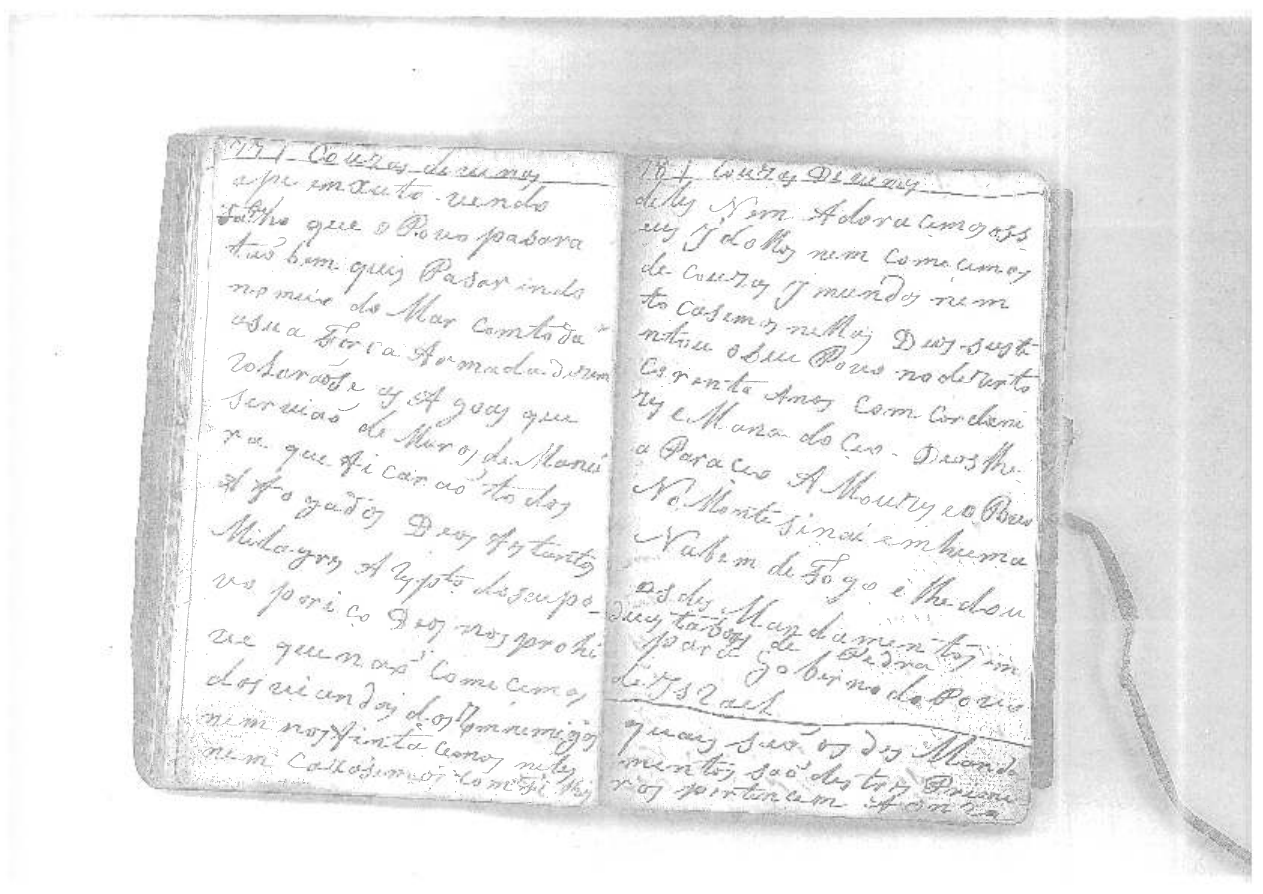 77 | Couzas devinas
a pe emxuto vendo
que o Povo pasara
tao bem quis Pasar indo
no meio do Mar com toda
a sua Forca Armada
as Agoas que
serviaõ de Muros de Manei
ra que ficaraõ todos
Afogados Deos fes tantos
Milagres A Igypto do seu po
vo por ico Deos nos prohi
ve que naõ comecemos
das viandas dos Innemigos
nem nos
nem
78 | Couzas Devinas
deles Nem Adoracemos os s
eus Idollos nem comecemos
de couzas Imundas nem
to casemos nellas Deos suste
ntou o seu Povo no dezerto
Corenta Anos com Cordeni
zes e Mana do Ceo. Deos lhe
a Pareceo A Mouzes e o Povo
No Monte Sinai em huma
Nabem de Fogo e lhe dou
os des Mandamentos em
duas tabos de Pedra
para goberno do Povo
de Israel
quais saõ os des Manda
mentos saõ des tres Primei
ros pertencem A onra